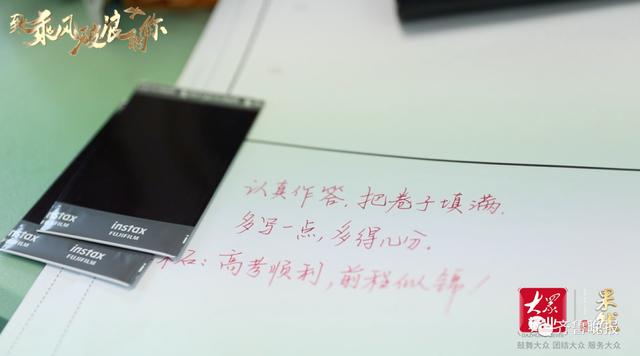 致乘风破浪的你
认真作答,把卷子填满.
多写一点,多得几分.
石:高考顺利,前程似锦!
instax
FUJIFILM
instax
FUJIFILM
大众
果然
齐鲁晚报
鼓舞大众 团结大众 服务大众